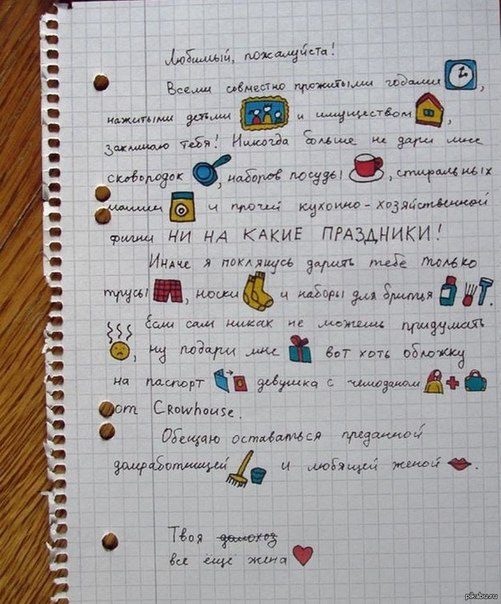 Любимый, пожалуйста!
Всеми совместно прожитыми годами,
нажитыми детьми и имуществом,
заклинаю тебя! Никогда больше не дари мне
сковородок, наборов посуды, стиральных
машин и прочей кухонно-хозяйственной
фигни НИ НА КАКИЕ ПРАЗДНИКИ!
Иначе я поклянусь дарить тебе только
трусы, носки и наборы для бритья.
Если сам никак не можешь придумать
, ну подари мне вот хоть обложку
на паспорт девушка с чемоданом
от Crowhouse.
Обещаю оставаться преданной
домработницей и любящей женой.
Твоя домохоз
все ещё жена
pikabu.ru